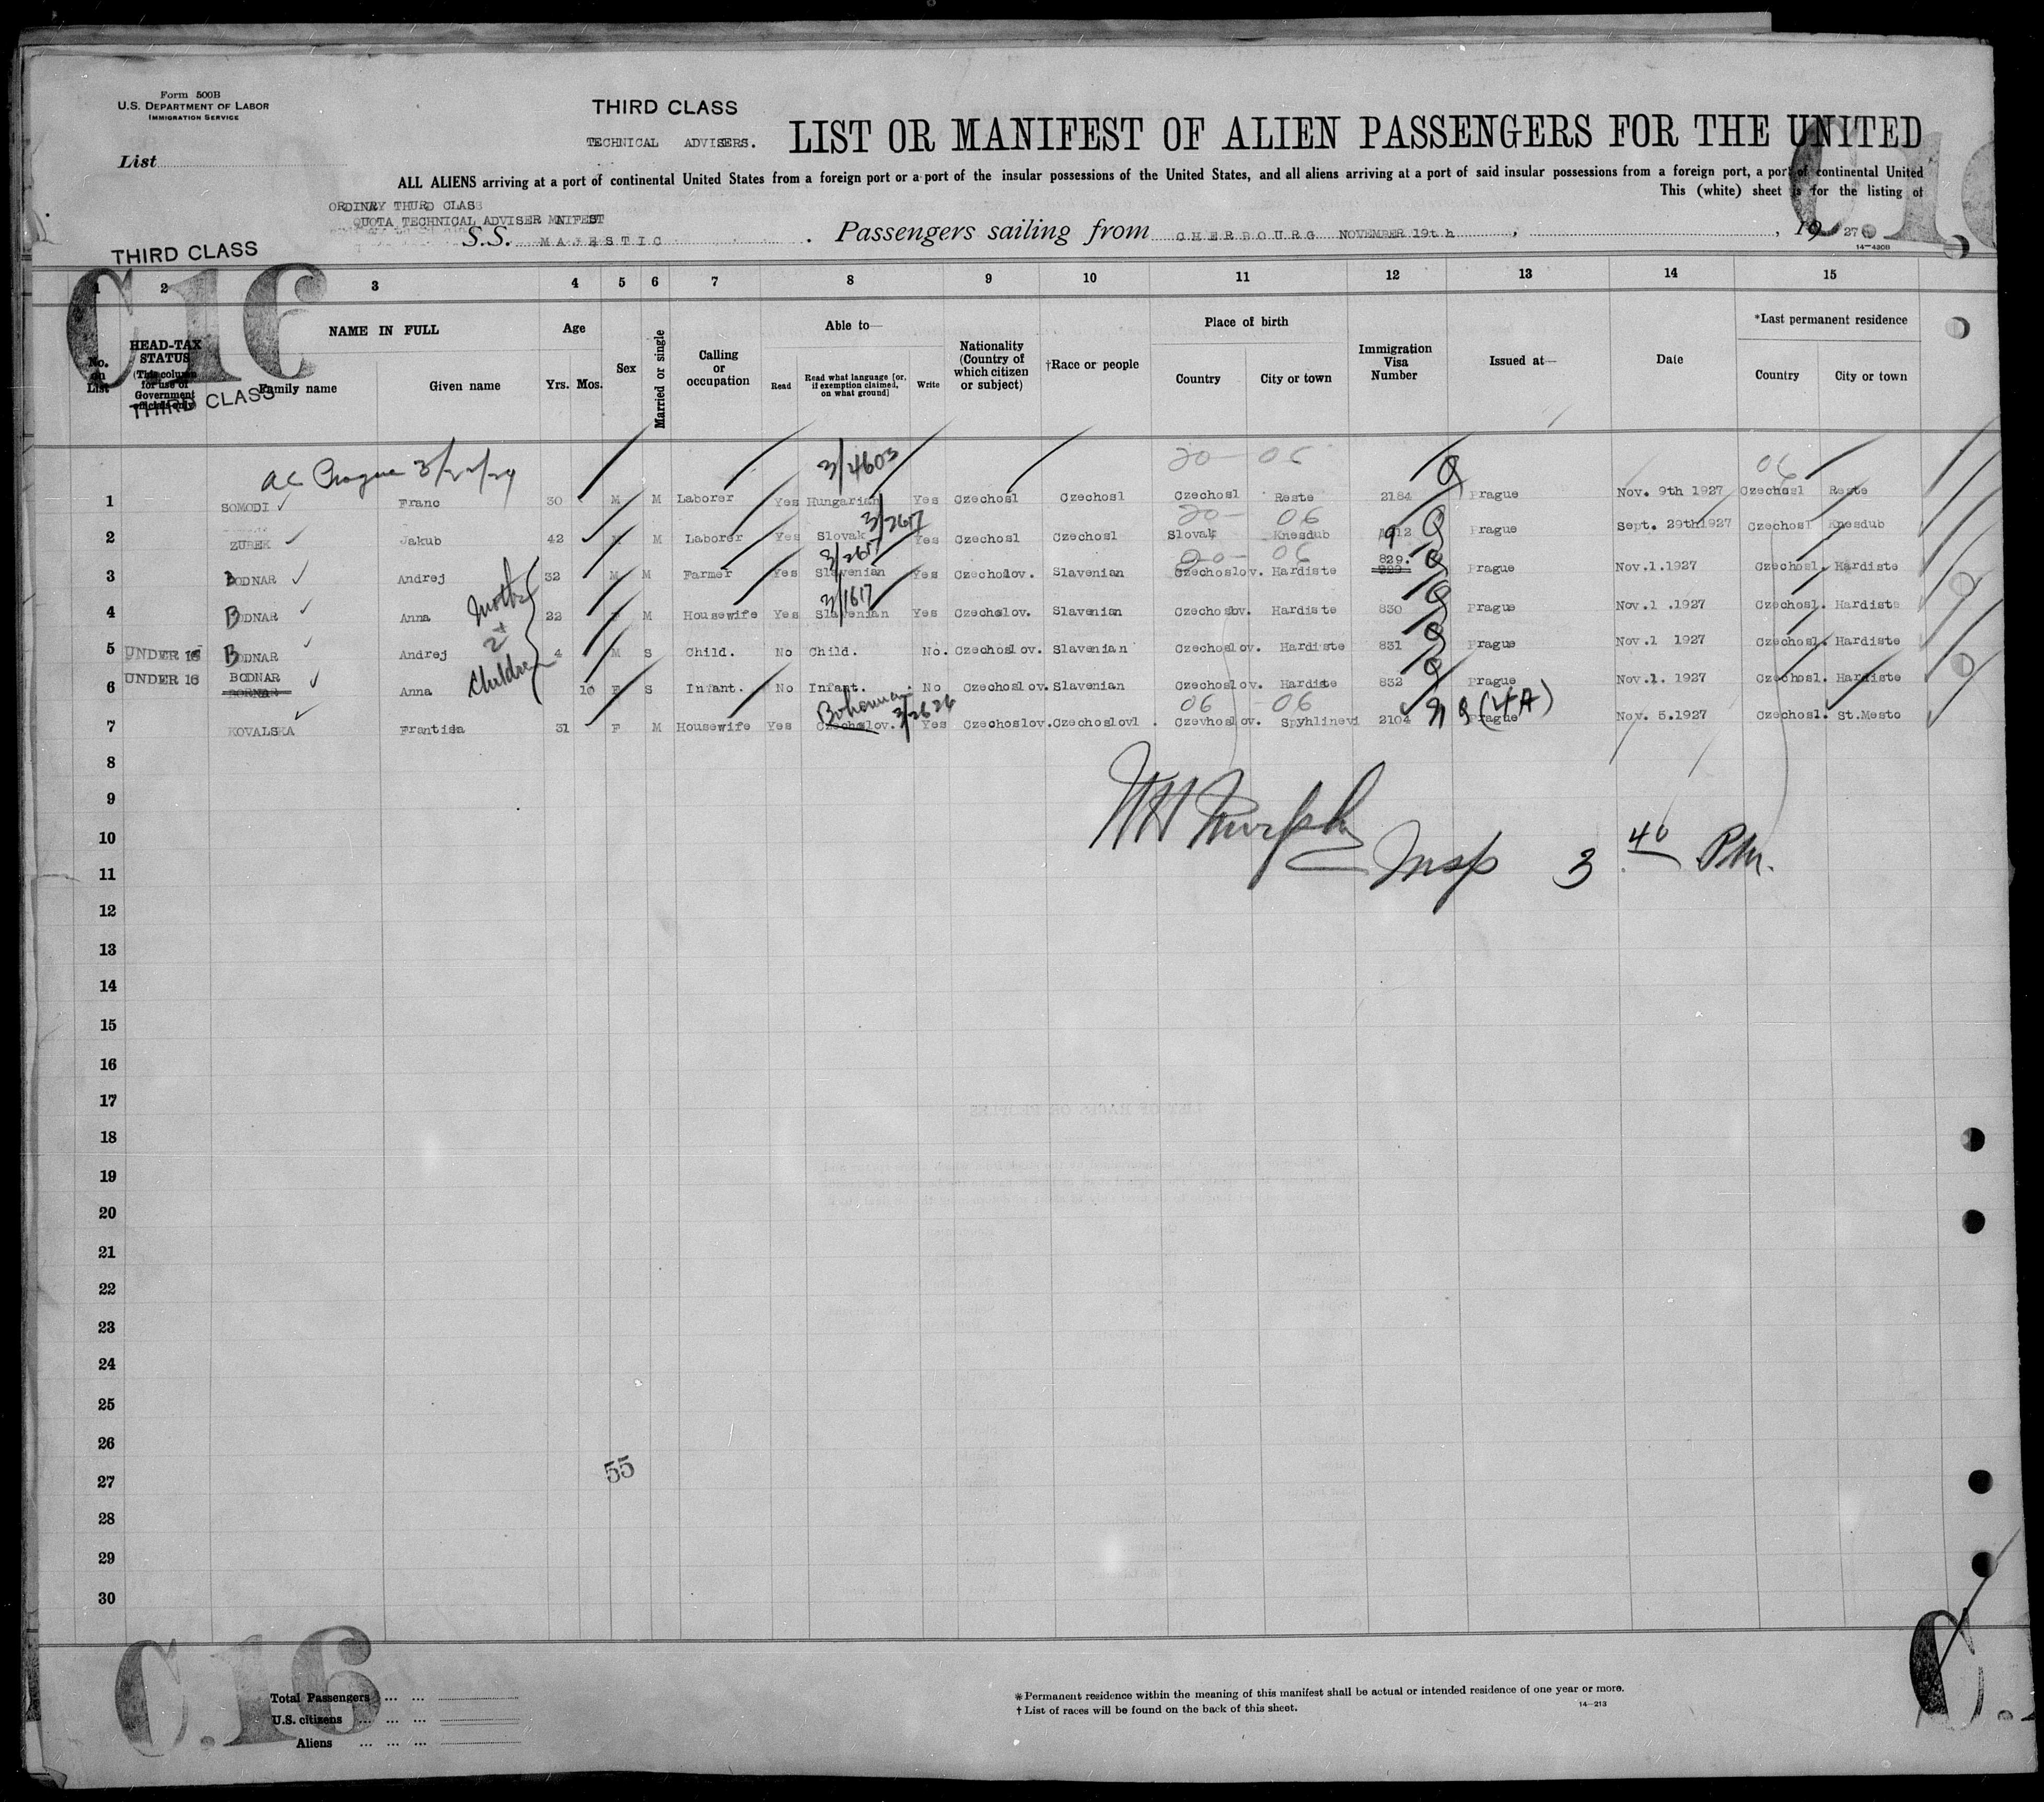 Form 500B
U.S. DEPARTMENT OF LABOR
IMMIGRATION SERVICE
List
THIRD CLASS
TECHNICAL ADVISERS.
LIST OR MANIFEST OF ALIEN PASSENGERS FOR THE UNITED
ALL ALIENS arriving at a port of continental United States from a foreign port or a port of the insular possessions of the United States, and all aliens arriving at a port of said insular possessions from a foreign port, a port of continental United
This (white) sheet is for the listing of
ORDINRY THURD CLASS
QUOTA TECHNICAL ADVISER MNIFEST
THIRD CLASS
S.S. MAJESTIC. Passengers sailing from CHERBOURG NOVEMBER 19th, 1927
14-430B
C16
C16
1 2 3 4 5 6 7 8 9 10 11 12 13 14 15
No. on List
HEAD-TAX STATUS (This column for use of Government officials only)
THIRD CLASS
NAME IN FULL
Family name Given name
Age
Yrs. Mos.
Sex
Married or single
Calling or occupation
Able to—
Read
Read what language [or, if exemption claimed, on what ground]
Write
Nationality (Country of which citizen or subject)
†Race or people
Place of birth
Country City or town
Immigration Visa Number
Issued at—
Date
*Last permanent residence
Country City or town
Prague 3/4603 20 - 06 Q 06
1 SOMODI Franc 30 M M Laborer Yes Hungarian Yes Czechosl Czechosl Czechosl Reste 2184 Prague Nov. 9th 1927 Czechosl Reste
3/2617 20- 06
2 ZUBEK Jakub 42 M M Laborer Yes Slovak Yes Czechosl Czechosl Slovak Knesdub 912 Q Prague Sept. 29th1927 Czechosl Knesdub
3/2617 20- 06 829.
3 BODNAR Andrej 32 M M Farmer Yes Slavenian Yes Czechoslov. Slavenian Czechoslov. Hardiste 829 Q Prague Nov.1.1927 Czechosl. Hardiste
3/1617
4 BODNAR Anna 22 F M Housewife Yes Slavenian Yes Czechslov. Slavenian Czechoslov. Hardiste 830 Q Prague Nov.1 .1927 Czechosl. Hardiste
Mother
2+
Children
5 UNDER 16 BODNAR Andrej 4 M S Child. No Child. No. Czechoslov. Slavenian Czechoslov. Hardiste 831 Q Prague Nov.1 1927 Czechosl. Hardiste
UNDER 16 BODNAR
6 BORNAR Anna 10 F S Infant. No Infant. No Czechoslov. Slavenian Czechoslov. Hardiste 832 Q Prague Nov.1. 1927 Czechosl. Hardiste
Bohemian 3/2626 06 06
7 KOVALSKA Frantiska 31 F M Housewife Yes Czechoslov. Yes Czechoslov. Czechoslovl. Czevhoslov. Spyhlinevi 2104 (4A) Prague Nov. 5.1927 Czechosl. St.Mesto
8
9
WH Murphy
10
Insp 3 40 PM.
11
12
13
14
15
16
17
18
19
20
21
22
23
24
25
26
55
27
28
29
30
C.16
Total Passengers
U.S. citizens
Aliens
*Permanent residence within the meaning of this manifest shall be actual or intended residence of one year or more.
†List of races will be found on the back of this sheet.
14-213
C.